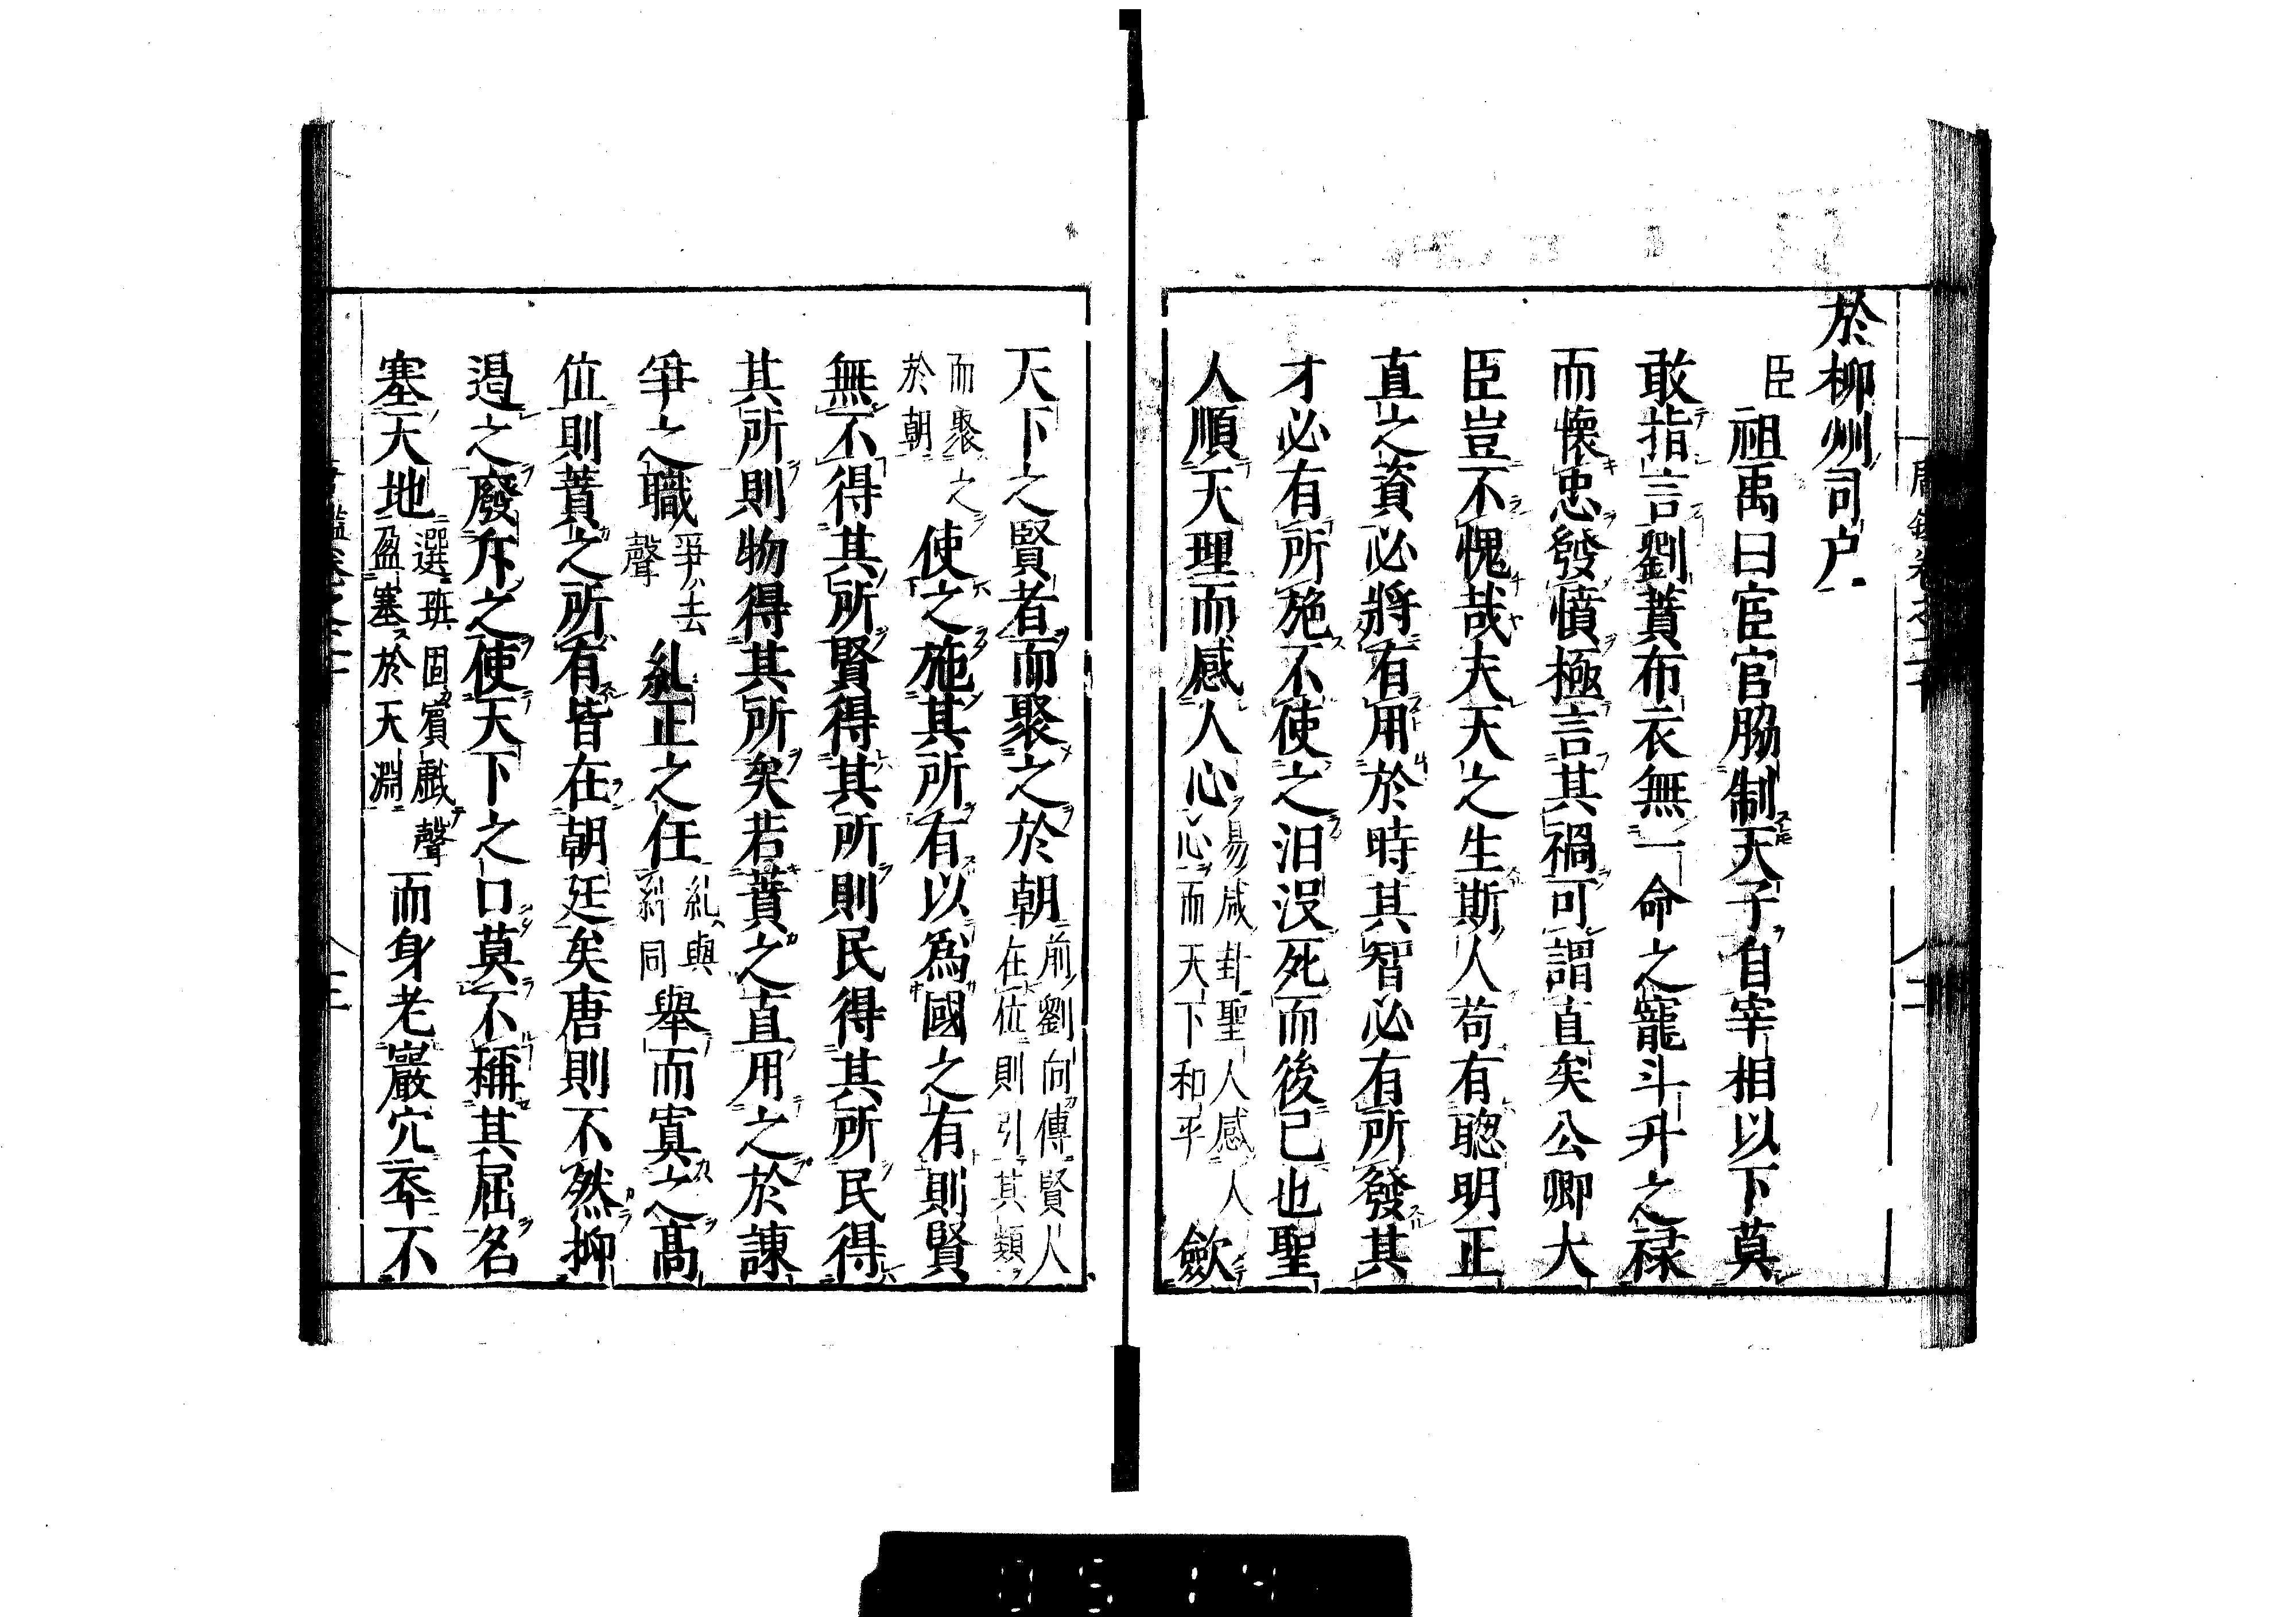 於柳州司户
臣祖禹曰宦官脇制天子自宰相以下莫
敢指言劉蕡布衣無一命之寵斗升之禄
而懷忠發憤極言其禍可謂直矣公卿大
臣豈不愧哉夫天之生斯人苟有聰明正
直之資必將有用於時其智必有所發其
才必有所施不使之汨没死而後已也聖
人順天理而感人心易咸卦聖人感人心而天下和平歛
天下之賢者而聚之於朝前劉向傳賢人在位則引其類
而聚之於朝使之施其所有以爲國之有則賢
無不得其所賢得其所則民得其所民得
其所則物得其所矣若蕡之直用之於諫
爭之職爭去聲糺正之任糺與糾同舉而寘之髙
位則蕡之所有皆在朝廷矣唐則不然抑
遏之廢斥之使天下之口莫不稱其屈名
塞天地選班固賓戲聲盈塞於天淵而身老巖穴卒不